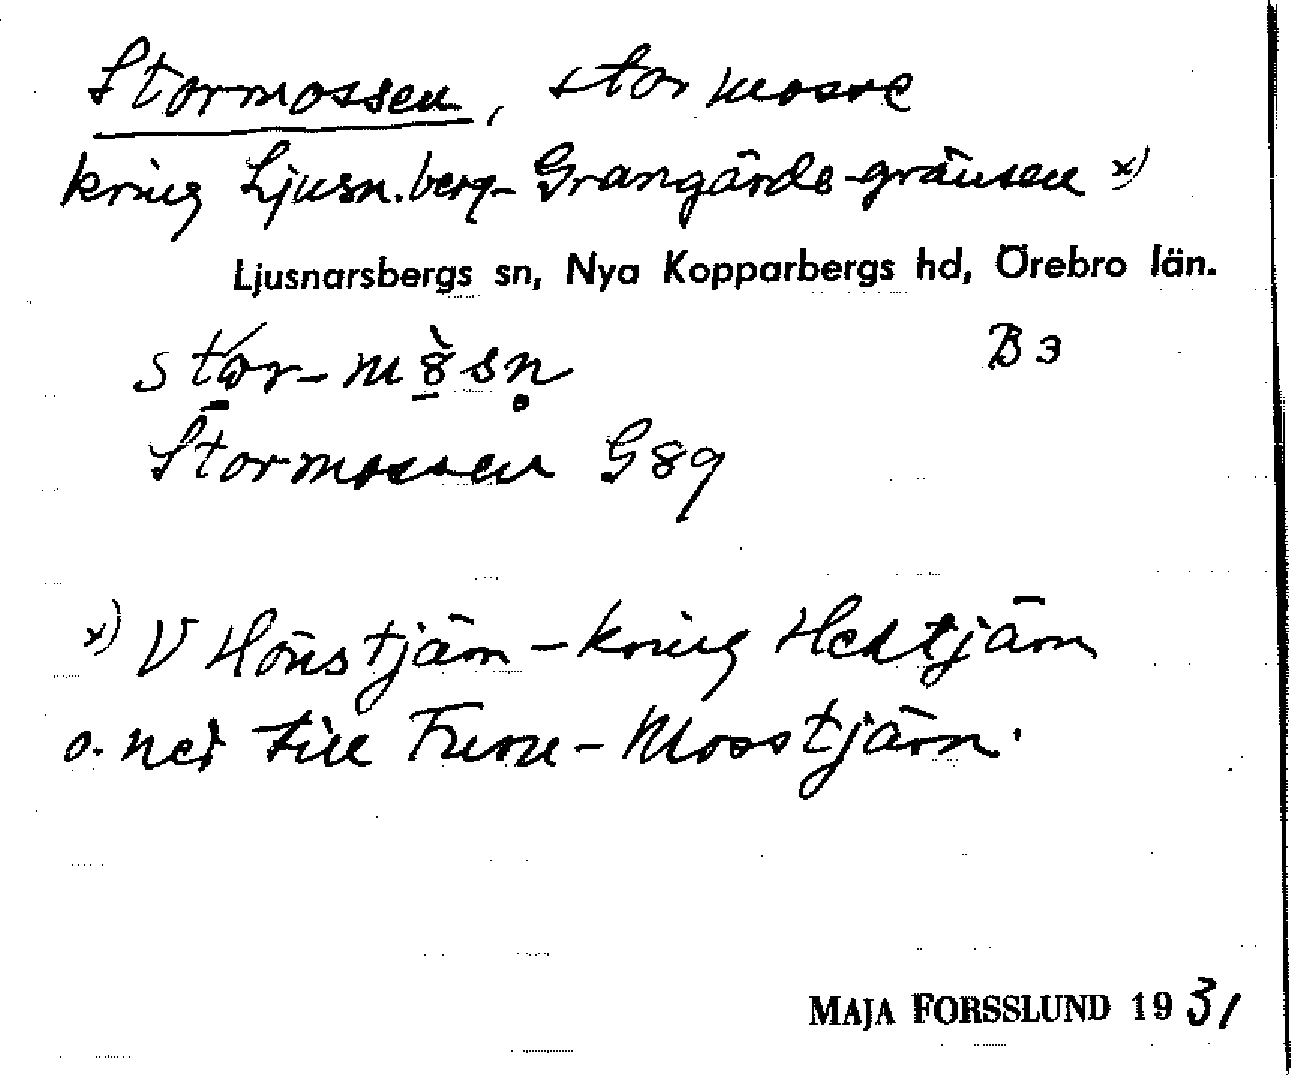 Stormossen, stor mosse
kring Ljusn.berg-Grangärde-gränsen x)
Ljusnarsbergs sn, Nya Kopparbergs hd, Örebro län.
B3
Stormossen G89
x) V Hönstjärn - kring Hedtjärn
o. ned till - Mosstjärn.
MAJA FORSSLUND 1931